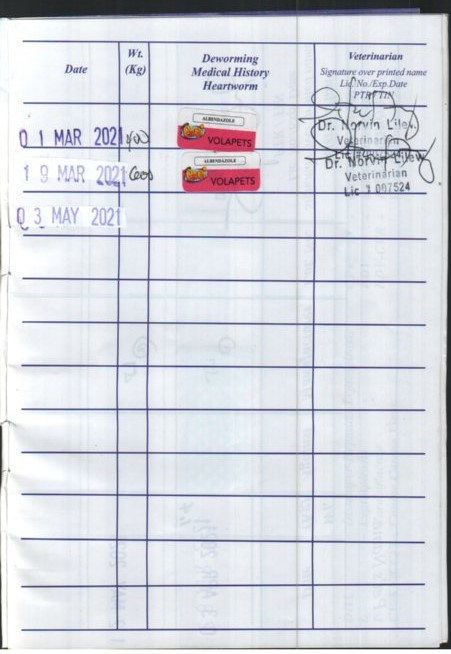 Date
Wt.
(Kg)
Deworming
Medical History
Heartworm
Veterinarian
Signature over printed name
Lic. No./Exp. Date
PTR/TIN
01 MAR 2021
ALBENDAZOLE
VOLAPETS
Dr. Norvin Lilew
Veterinarian
19 MAR 2021
600
ALBENDAZOLE
VOLAPETS
Dr. Norvin Lilew
Veterinarian
Lic # 007524
03 MAY 2021